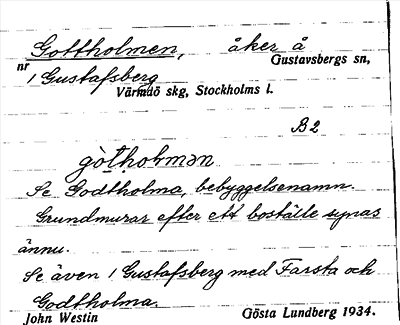 Gottholmen, åker å
Gustavsbergs sn,
nr
1 Gustafsberg
Värmdö skg, Stockholms l.
B2
gòt̯hoɫmən
Se Godtholma, bebyggelsenamn.
Grundmurar efter ett boställe synas
ännu.
Se även 1 Gustafsberg med Farsta och
Godtholma.
John Westin
Gösta Lundberg 1934.